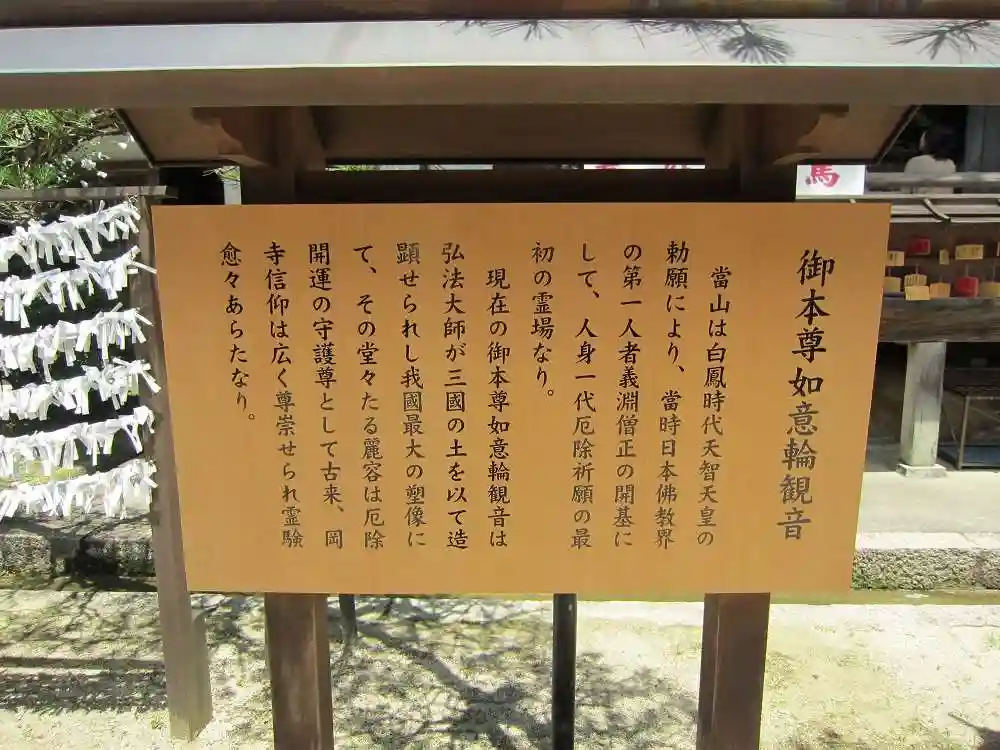 御本尊如意輪観音
當山は白鳳時代天智天皇の
勅願により、當時日本佛教界
の第一人者義淵僧正の開基に
して、人身一代厄除祈願の最
初の霊場なり。
現在の御本尊如意輪観音は
弘法大師が三國の土を以て造
顕せられし我國最大の塑像に
て、その堂々たる麗容は厄除
開運の守護尊として古来、岡
寺信仰は広く尊崇せられ霊験
愈々あらたなり。
馬